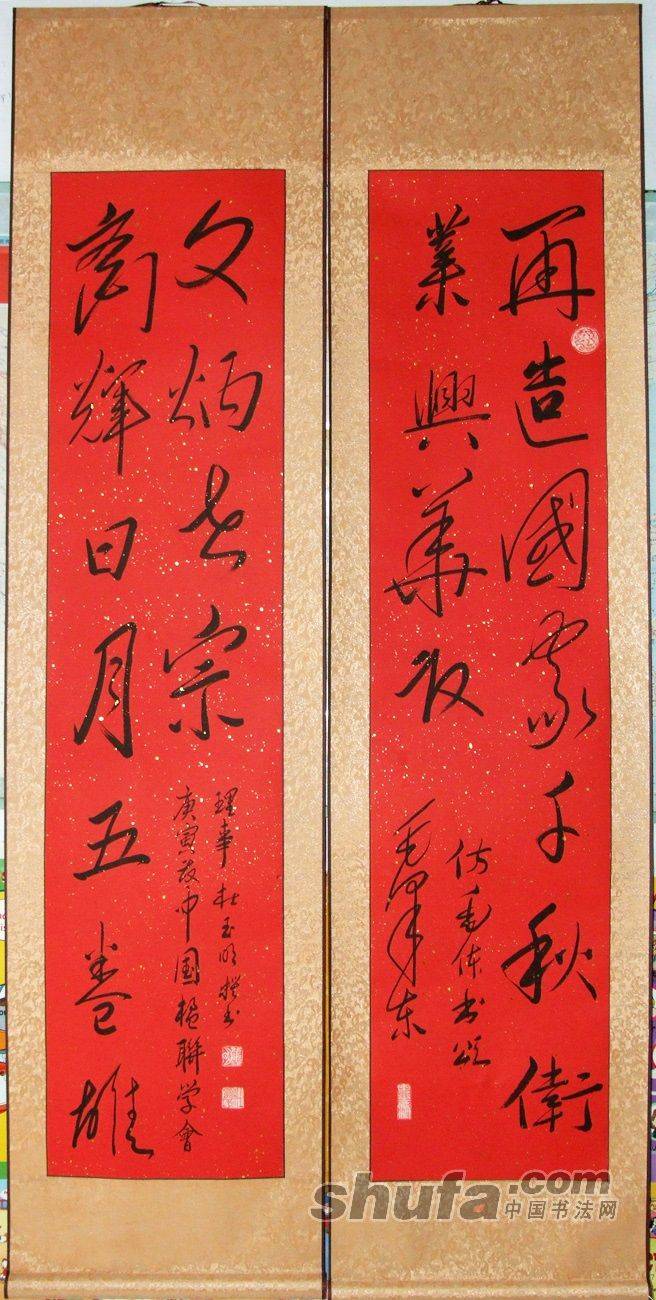 再造國家千秋衛
業興華夏
仿毛体书颂
毛泽东
輝日月五卷雄
文炳世宗
庚寅岁中國楹聯学會
理事杜玉明撰书
shufa.com
中国书法网